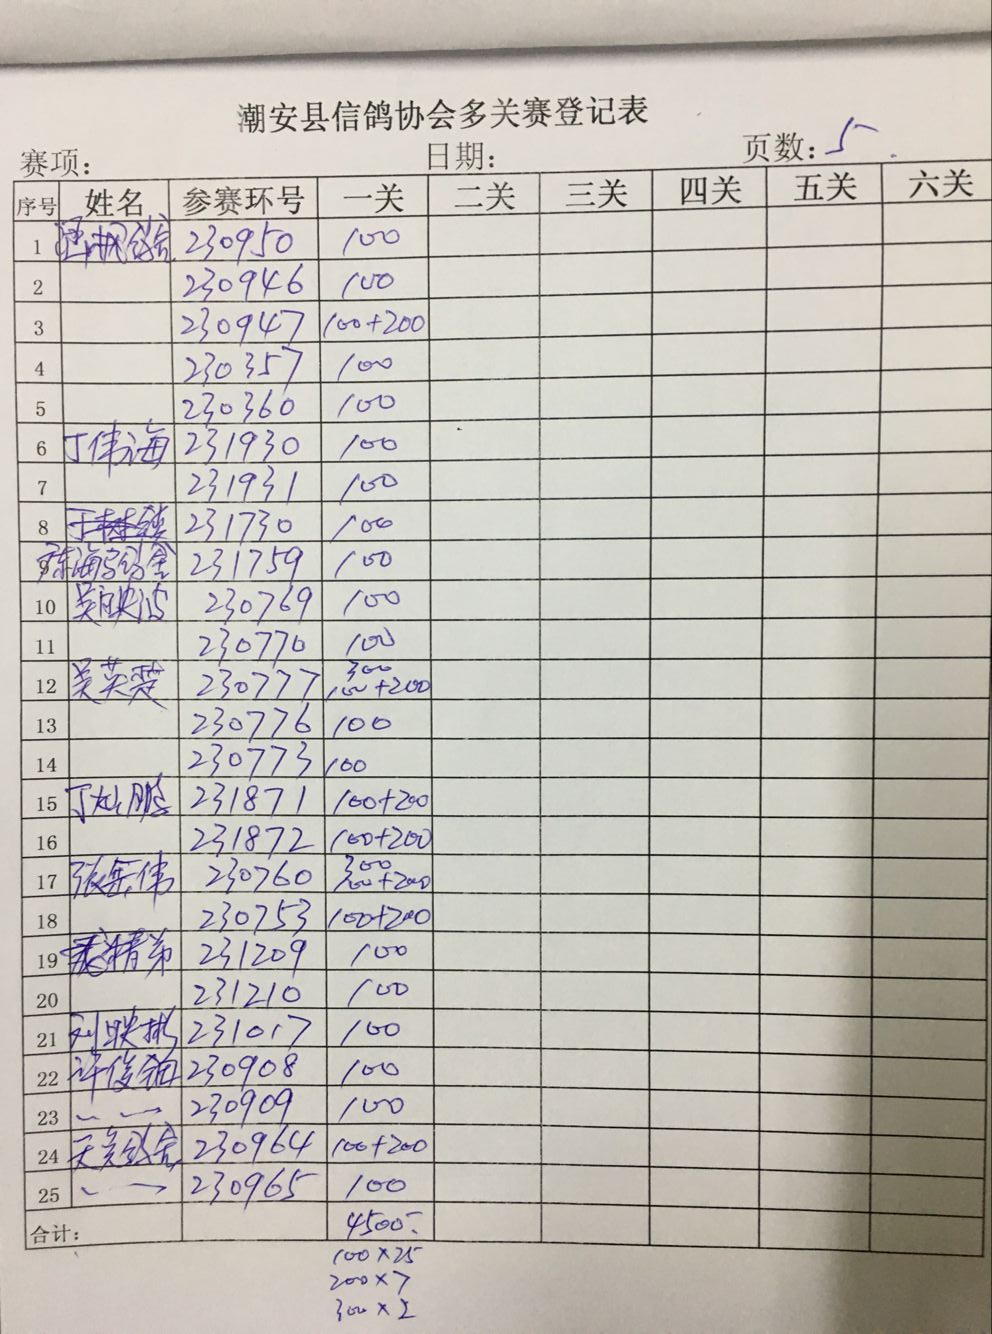 潮安县信鸽协会多关赛登记表
赛项: 日期: 页数: 5
序号 姓名 参赛环号 一关 二关 三关 四关 五关 六关
1 230950 100
2 230946 100
3 230947 100+200
4 230357 100
5 230360 100
6 丁伟海 231930 100
7 231931 100
8 231730 100
9 陈海 231759 100
10 吴映 230769 100
11 230770 100
12 吴英 230777 300 100+200
13 230776 100
14 230773 100
15 丁灿鹏 231871 100+200
16 231872 100+200
17 张岳伟 230760 300 100+200
18 230753 100+200
19 精弟 231209 100
20 231210 100
21 刘映彬 231017 100
22 许俊 230908 100
23 230909 100
24 230964 100+200
25 230965 100
合计: 4500
100×25
200×7
300×2